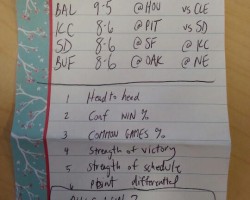 BAL 9-5 @HOU vs CLE
KC 8-6 @PIT vs SD
SD 8-6 @SF @KC
BUF 8-6 @OAK @NE
1 Head to head
2 Conf WIN %
3 COMMON GAMES %
4 Strength of victory
5 Strength of schedule
6 point differential